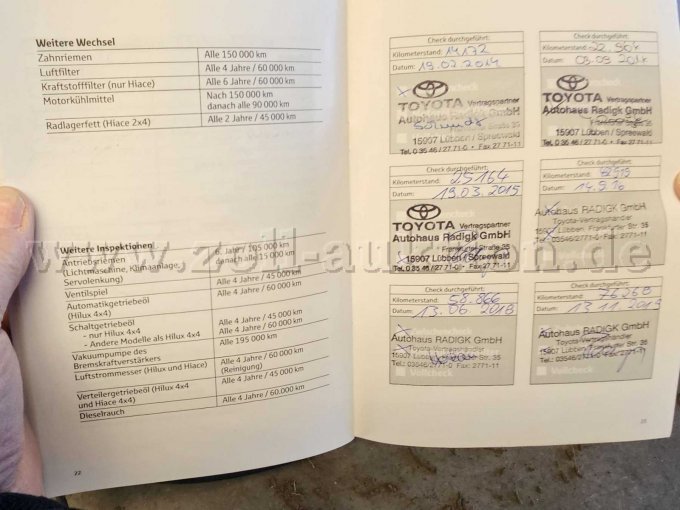 Weitere Wechsel
Zahnriemen Alle 150 000 km
Luftfilter Alle 4 Jahre / 60 000 km
Kraftstofffilter (nur Hiace) Alle 6 Jahre / 60 000 km
Motorkühlmittel Nach 150 000 km
danach alle 90 000 km
Radlagerfett (Hiace 2x4) Alle 2 Jahre / 45 000 km
Weitere Inspektionen
Antriebsriemen 6. Jahr / 105 000 km
(Lichtmaschine, Klimaanlage, danach alle 15 000 km
Servolenkung)
Ventilspiel Alle 4 Jahre / 45 000 km
Automatikgetriebeöl Alle 4 Jahre / 60 000 km
(Hilux 4x4)
Schaltgetriebeöl
- nur Hilux 4x4 Alle 4 Jahre / 45 000 km
- Andere Modelle als Hilux 4x4 Alle 4 Jahre / 60 000 km
Vakuumpumpe des Alle 195 000 km
Bremskraftverstärkers
Luftstrommesser (Hilux und Hiace) Alle 4 Jahre / 60 000 km
(Reinigung)
Verteilergetriebeöl (Hilux 4x4 Alle 4 Jahre / 45 000 km
und Hiace 4x4)
Dieselrauch Alle 4 Jahre / 60 000 km
22
Check durchgeführt:
Kilometerstand: 14132
Datum: 19.02.2014
TOYOTA Vertragspartner
Autohaus Radigk GmbH
15907 Lübben / Spreewald
Tel. 0 35 46 / 27 71-0 • Fax 27 71-11
Check durchgeführt:
Kilometerstand:
Datum:
TOYOTA Vertragspartner
Autohaus Radigk GmbH
15907 Lübben / Spreewald
Tel. 0 35 46 / 27 71-0 • Fax 27 71-11
Check durchgeführt:
Kilometerstand: 25164
Datum: 19.03.2015
TOYOTA Vertragspartner
Autohaus Radigk GmbH
Frankfurter Straße 35
15907 Lübben / Spreewald
Tel.: 0 35 46 / 27 71-0 • Fax 27 71-11
Check durchgeführt:
Kilometerstand:
Datum: 14.9.16
Autohaus RADIGK GmbH
Toyota-Vertragshändler
15907 Lübben, Frankfurter Str. 35
Tel.: 03546/2771-0 Fax: 2771-11
Check durchgeführt:
Kilometerstand: 58.866
Datum: 13.06.2018
Zwischencheck
Autohaus RADIGK GmbH
Toyota-Vertragshändler
15907 Lübben, Frankfurter Str. 35
Tel.: 03546/2771-0 Fax: 2771-11
Vollcheck
Check durchgeführt:
Kilometerstand: 76268
Datum: 13.11.2019
Autohaus RADIGK GmbH
Toyota-Vertragshändler
15907 Lübben, Frankfurter Str. 35
Tel.: 03546/2771-0 Fax: 2771-11
Vollcheck
www.zoll-auktion.de